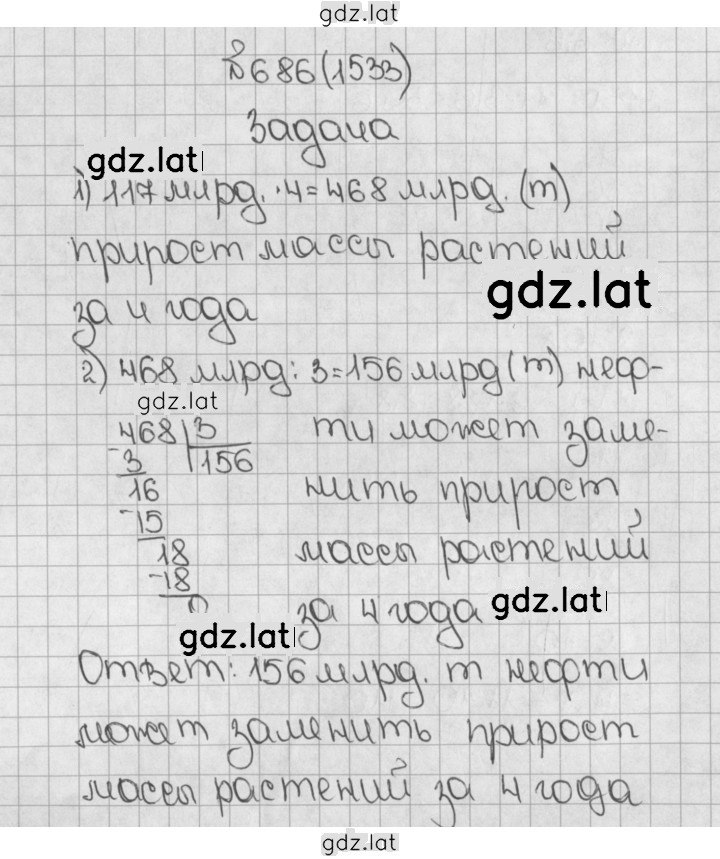 gdz.lat
№686(1533)
Задача
gdz.lat
1) 117 млрд. ·4=468 млрд. (т)
прирост массы растений
gdz.lat
за 4 года
2) 468 млрд: 3=156 млрд (т) неф-
gdz.lat
468 3 ти может заме-
-3 156
16 нить прирост
-15
18 массы растений
-18
0 за 4 года gdz.lat
gdz.lat
Ответ: 156 млрд. т нефти
может заменить прирост
массы растений за 4 года
gdz.lat